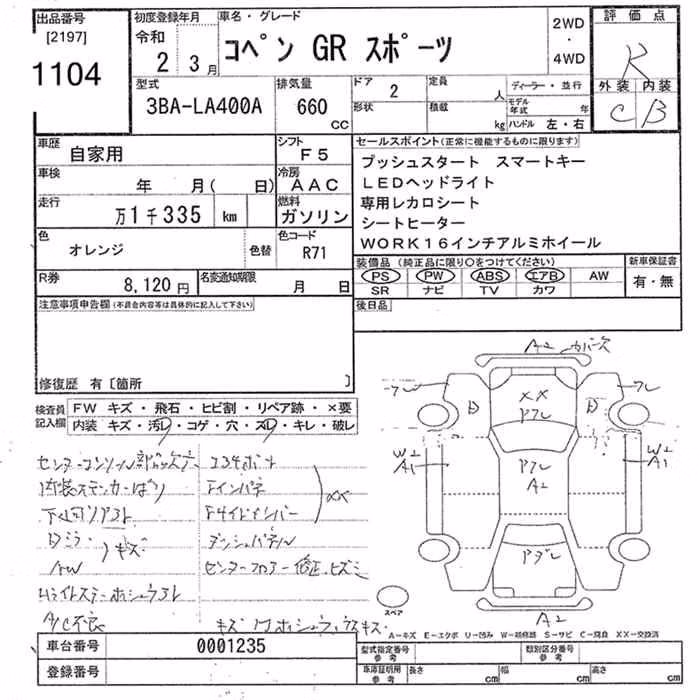 出品番号
[2197]
1104
初度登録年月
令和
2 3月
車名・グレード
コペン GR スポーツ
2WD
・
4WD
評価点
R
外装 内装
C B
型式
3BA-LA400A
排気量
660
CC
ドア
2
形状
定員
人
積載
kg
ディーラー・並行
モデル年式 年
ハンドル 左・右
車歴
自家用
シフト
F5
車検
年 月( 日)
冷房
AAC
走行
万1千335 km
燃料
ガソリン
色
オレンジ
色替
色コード
R71
R券
8,120円
名変通知期限
月 日
セールスポイント(正常に機能するものに限ります)
プッシュスタート スマートキー
LEDヘッドライト
専用レカロシート
シートヒーター
WORK16インチアルミホイール
装備品(純正品に限り○をつけてください)
PS PW ABS エアB AW
SR ナビ TV カワ
新車保証書
有・無
後日品
注意事項申告欄(不具合内容等は具体的に記入して下さい)
修復歴 有[箇所 ]
検査員
記入欄
FW キズ・飛石・ヒビ割・リペア跡・×要
内装 キズ・汚レ・コゲ・穴・スレ・キレ・破レ
内装ステッカーはり
Dミラー
キズ
AW
A/C不良
コアサポート
Fインパネ
Fサイドメンバー
××
ダッシュパネル
センターフロアー修正、ヒズミ
A2 カバー欠
フレ
フレ
D
D
××
アフレ
W2
A1
アフレ
A2
W2
A1
アフレ
A2
スペア
A-キズ E-エクボ U-凹み W-補修跡 S-サビ C-腐食 ××-交換済
車台番号
0001235
登録番号
型式指定番号
参考
類別区分番号
参考
車庫証明用
参考
長さ cm
幅 cm
高さ cm